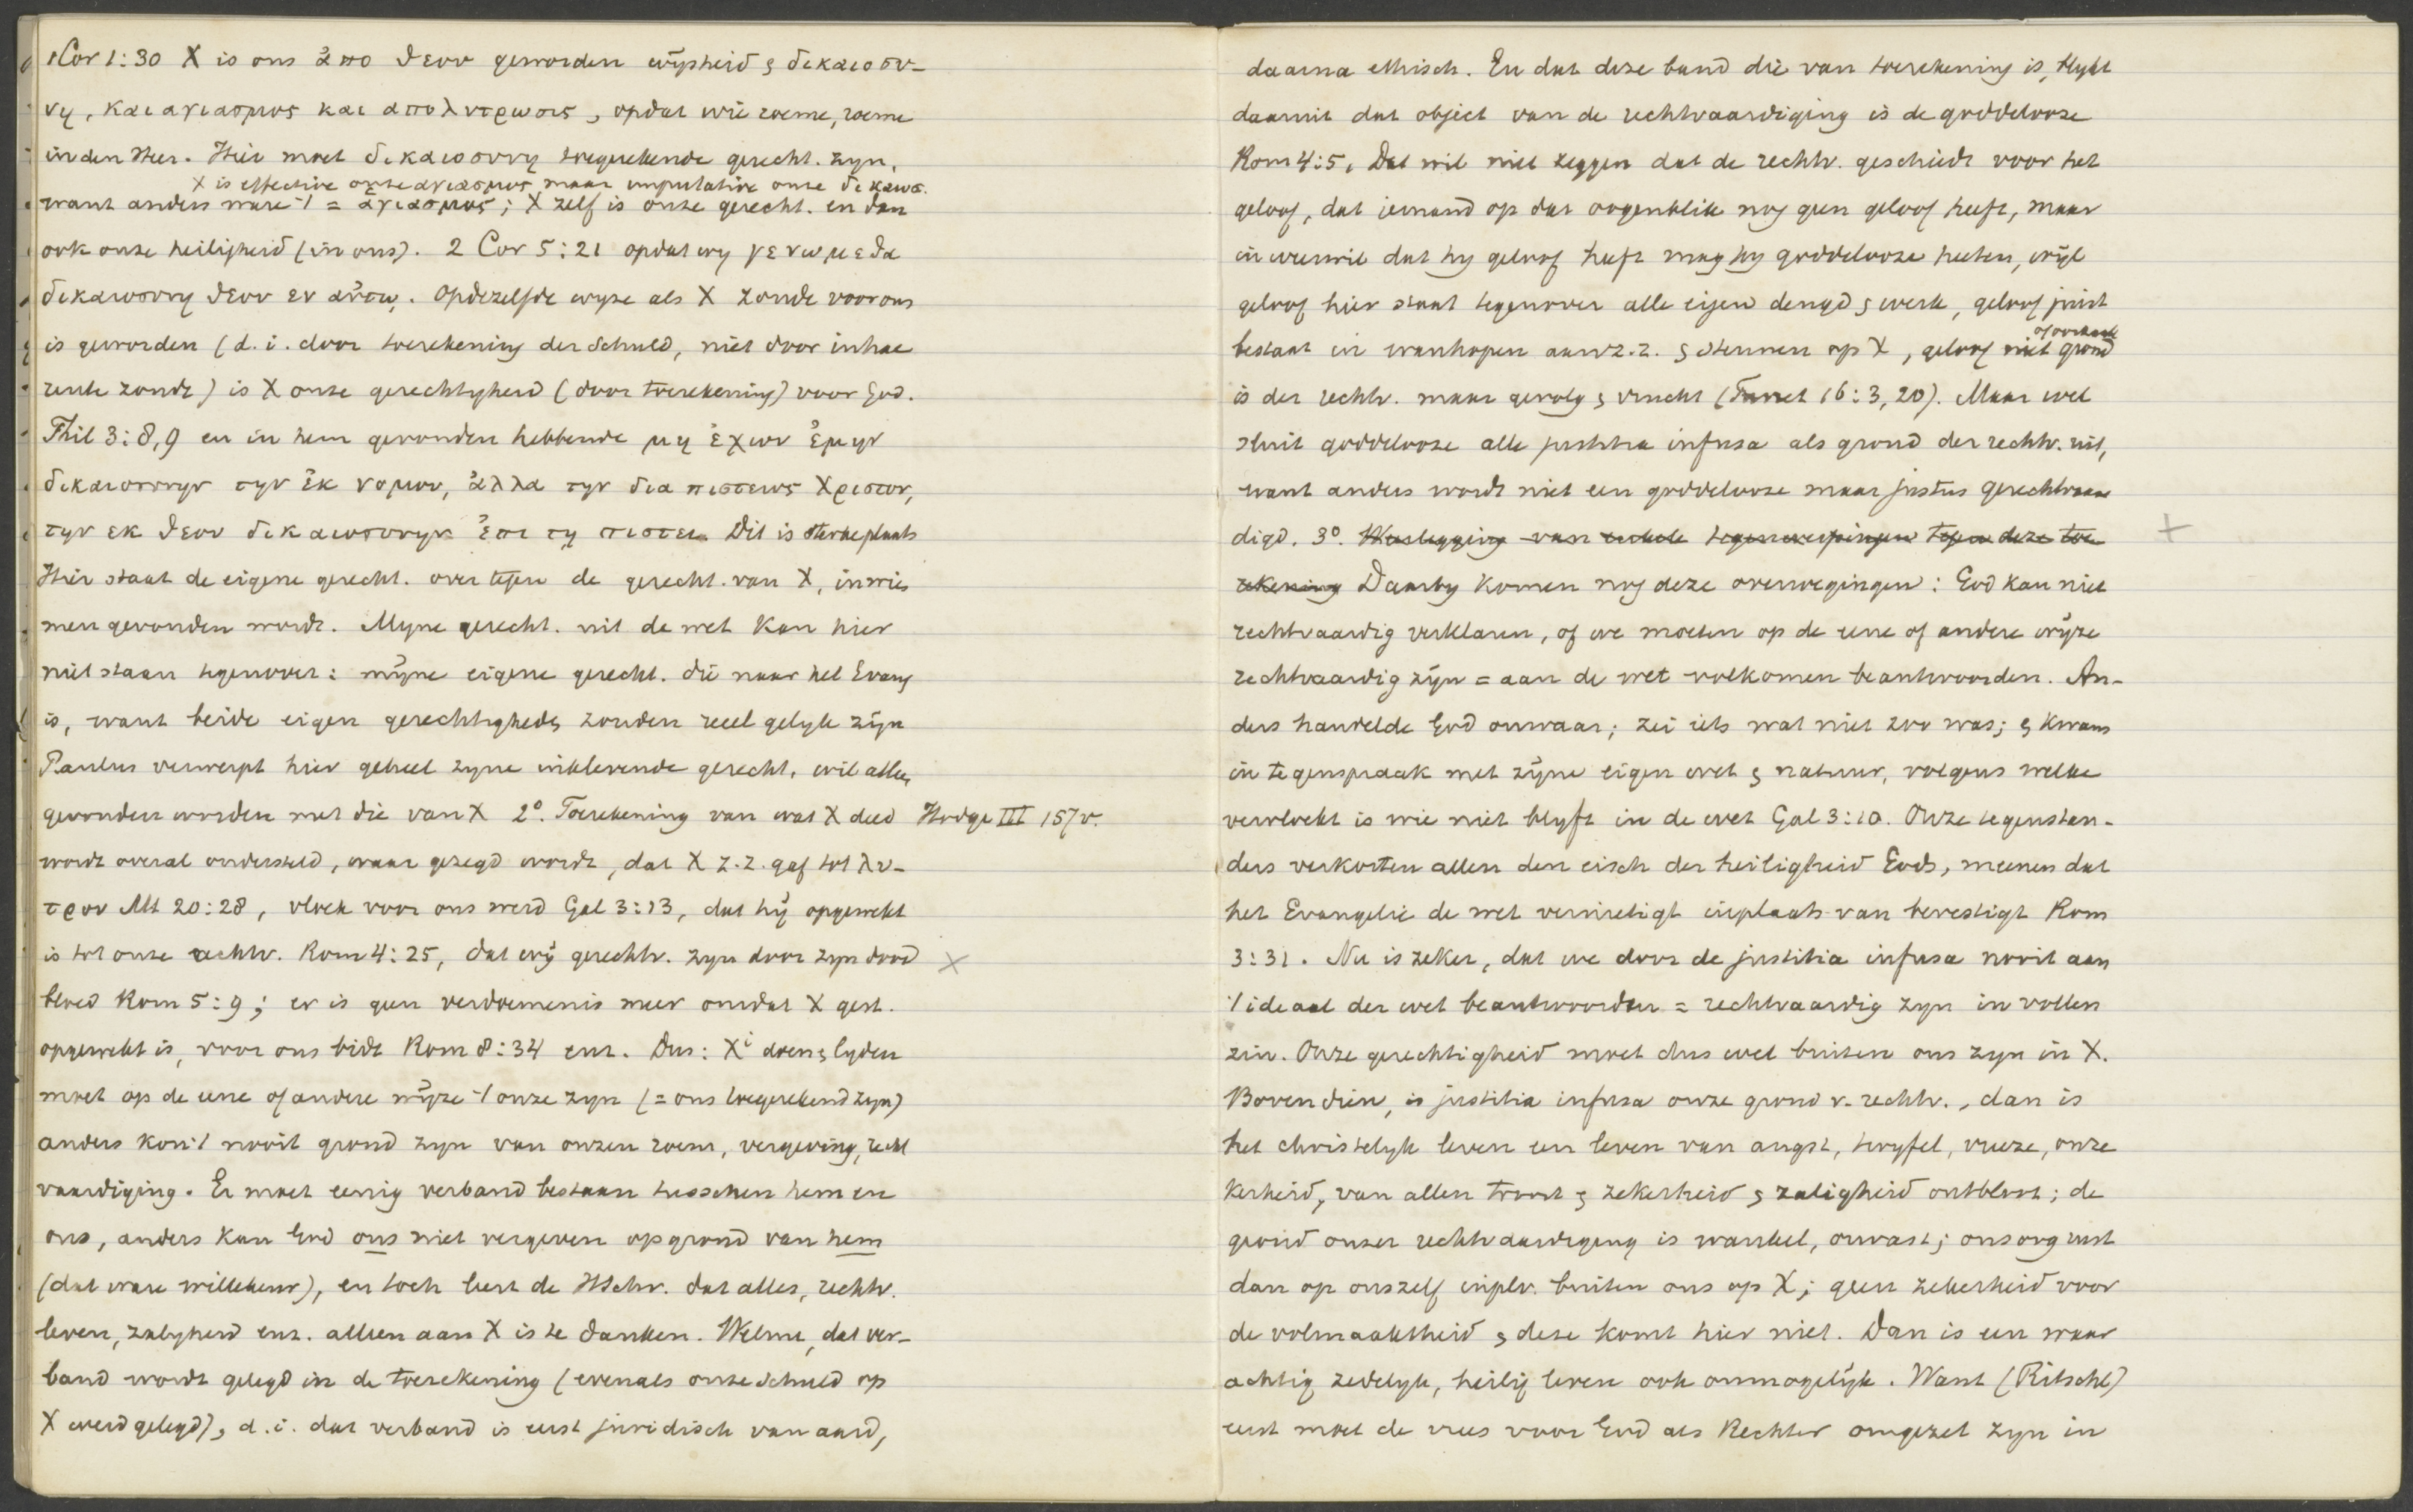 1 Cor 1:30 X is ons ἀπο θεου geworden wijsheid & δικαιοσυ-
νη, και αγιασμος και απολυτρωσις, opdat wie roeme, roeme
in den Heer. Hier moet δικαιοσυνη toegerekende gerecht. zyn,
X is effective onze αγιασμος maar imputative onze δικαιοσ.
want anders ware 't = αγιασμος; X zelf is onze gerecht. en dan
ook onze heiligheid (in ons). 2 Cor 5:21 opdat wy γενωμεθα
δικαιοσυνη θεου εν αὐτῳ. Opdezelfde wyze als X zonde voor ons
is geworden (d.i. door toerekening der schuld, niet door inhae
rente zonde) is X onze gerechtigheid (door toerekening) voor God.
Phil 3:8,9 en in hem gevonden hebbende μη ἐχων ἐμην
δικαιοσυνην την ἐκ νομου, ἀλλα την δια πιστεως Χριστου,
την εκ θεου δικαιοσυνην ἐπι τῃ πιστει. Dit is sterke plaats
Hier staat de eigene gerecht. over tegen de gerecht. van X, in wien
men gevonden wordt. Myne gerecht. uit de wet kan hier
niet staan tegenover: mijne eigene gerecht. die naar het Evang
is, want beide eigen gerechtigheden zouden reeel gelyk zijn
Paulus verwerpt hier geheel zyne inklevende gerecht, wil alleen
gevonden worden met die van X 2°. Toerekening van wat X deed Hodge III 157v.
wordt overal ondersteld, waar gezegd wordt, dat X z.z. gaf tot λυ-
τρον Mt 20:28, vloek voor ons werd Gal 3:13, dat hij opgewekt
is tot onze rechtv. Rom 4:25, dat wij gerechtv. zyn door zyn dood
bloed Rom 5:9; er is geen verdoemenis meer omdat X gest.
opgewekt is, voor ons bidt Rom 8:34 enz. Dus: Xi doen & lyden
moet op de eene of andere wijze 't onze zyn (= ons toegerekend zyn)
anders kon 't nooit grond zyn van onzen roem, vergeving, recht
vaardiging. Er moet eenig verband bestaan tusschen hem en
ons, anders kan God ons niet vergeven op grond van hem
(dat ware willekeur), en toch leert de HSchr. dat alles, rechtv.
leven, zaligheid enz. alleen aan X is te danken. Welnu, dat ver-
band wordt gelegd in de toerekening (evenals onze schuld op
X werd gelegd), d.i. dat verband is eerst juridisch van aard,
daarna ethisch. En dat deze band die van toerekening is, blykt
daaruit dat object van de rechtvaardiging is de goddelooze
Rom 4:5. Dat wil niet zeggen dat de rechtv. geschiedt voor het
geloof, dat iemand op dat oogenblik nog geen geloof heeft, maar
in weerwil dat hy geloof heeft mag hy goddelooze heeten, wijl
geloof hier staat tegenover alle eigen deugd & werk, geloof juist
of oorzaak
bestaat in wanhopen aan z.z. & steunen op X, geloof niet grond
is der rechtv. maar gevolg & vrucht (Turret 16:3,20). Maar wel
sluit goddelooze alle justitia infusa als grond der rechtv. uit,
want anders wordt niet een goddelooze maar justus gerechtvaar
digd. 3°. Weerlegging van enkele tegenwerpingen tegen deze toe
rekening Daarby komen nog deze overwegingen: God kan niet
rechtvaardig verklaren, of we moeten op de eene of andere wijze
rechtvaardig zijn = aan de wet volkomen beantwoorden. An-
ders handelde God onwaar; zei iets wat niet zoo was; & kwam
in tegenspraak met zijne eigen wet & natuur, volgens welke
vervloekt is wie niet blyft in de wet Gal 3:10. Onze tegenstan-
ders verkorten allen den eisch der heiligheid Gods, meenen dat
het Evangelie de wet vernietigt inplaats van bevestigt Rom
3:31. Nu is zeker, dat we door de justitia infusa nooit aan
't ideaal der wet beantwoorden = rechtvaardig zyn in vollen
zin. Onze gerechtigheid moet dus wel buiten ons zyn in X.
Bovendien, is justitia infusa onze grond v. rechtv., dan is
het christelyk leven een leven van angst, twyfel, vreeze, onze
kerheid, van allen troost & zekerheid & zaligheid ontbloot; de
grond onzer rechtvaardiging is wankel, onvast; ons oog rust
dan op onszelf inplv. buiten ons op X; geen zekerheid voor
de volmaaktheid & deze komt hier niet. Dan is een waar
achtig zedelyk, heilig leven ook onmogelijk. Want (Ritschl)
eerst moet de vrees voor God als Rechter omgezet zyn in